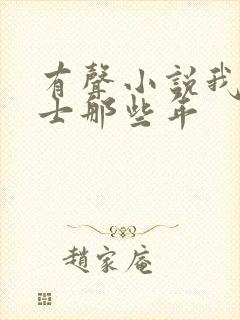 有聲小說我
士那些年
趙家庵